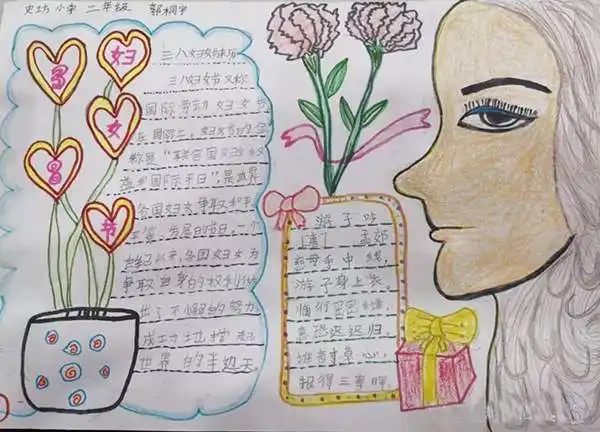 史坊小学 二年级 郭桐宇
三 妇
八 女
节
三八妇女节来历
三八妇女节又称
国际劳动妇女节
在国际上,妇女节的全
称是“联合国妇女权
益和国际和平日”,是世界
各国妇女争取和平
平等、发展的节日。一个
世纪以来,各国妇女为
争取自身的权利付
出了不懈的努力
成功地撑起
世界的半边天。
游子吟
[唐] 孟郊
慈母手中线,
游子身上衣。
临行密密缝,
意恐迟迟归。
谁言寸草心,
报得三春晖。